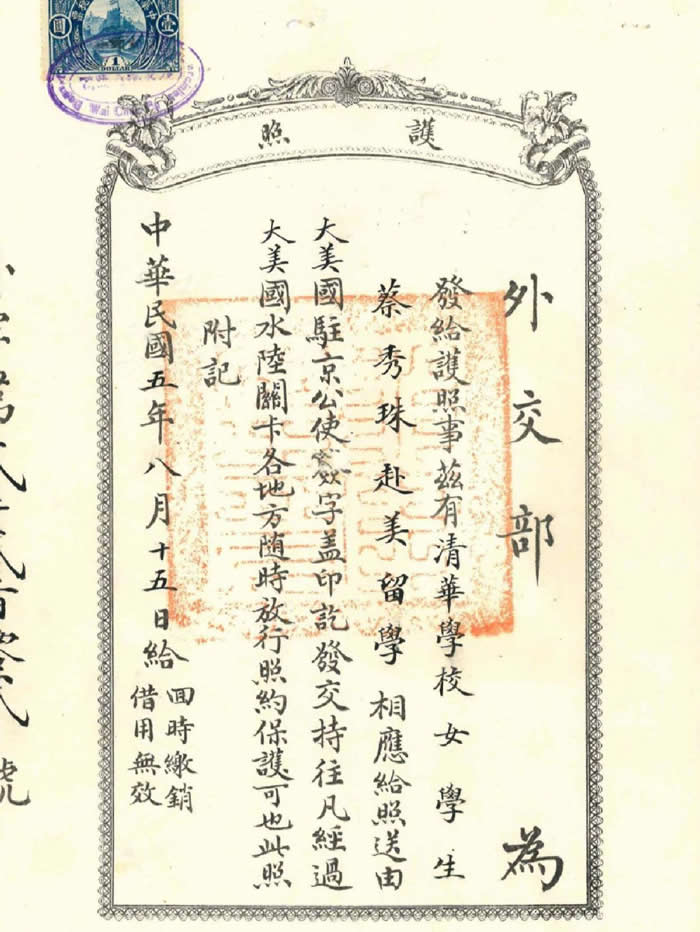 護照
外交部為
發給護照事茲有清華學校女學生
蔡秀珠赴美留學相應給照送由
大美國駐京公使簽字盖印訖發交持往凡經過
大美國水陸關卡各地方随時放行照約保護可也此照
附記
中華民國五年八月十五日給
回時繳銷
借用無效
號
壹
圓
1
DOLLAR